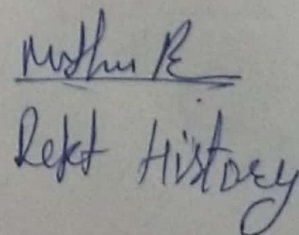 Muthu R
Dept History